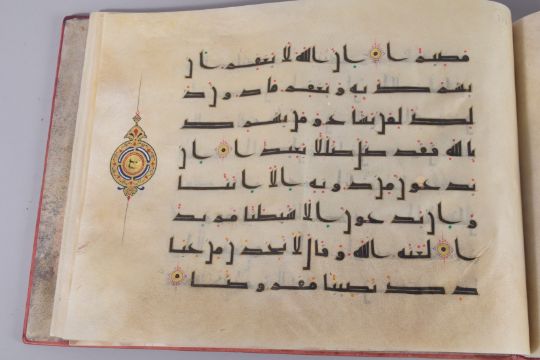 مصيرا ان الله لا يغفر ان
يشرك به ويغفر ما دون ذ
لك لمن يشا ومن يشرك
بالله فقد ضل ضللا بعيدا ان
يدعون من دونه الا انثا
وان يدعون الا شيطنا مريد
ا لعنه الله وقال لاتخذن من عبا
دك نصيبا مفروضا